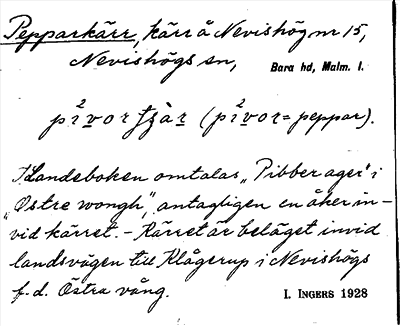 Pepparkärr, kärr å Nevishög nr 15,
Nevishögs sn, Bara hd, Malm. l.
(pi²vor = peppar).
I Landeboken omtalas „Pibber ager" i
„Østre wongh", antagligen en åker in-
vid kärret. – Kärret är beläget invid
landsvägen till Klågerup i Nevishögs
f. d. Östra vång. I. INGERS 1928